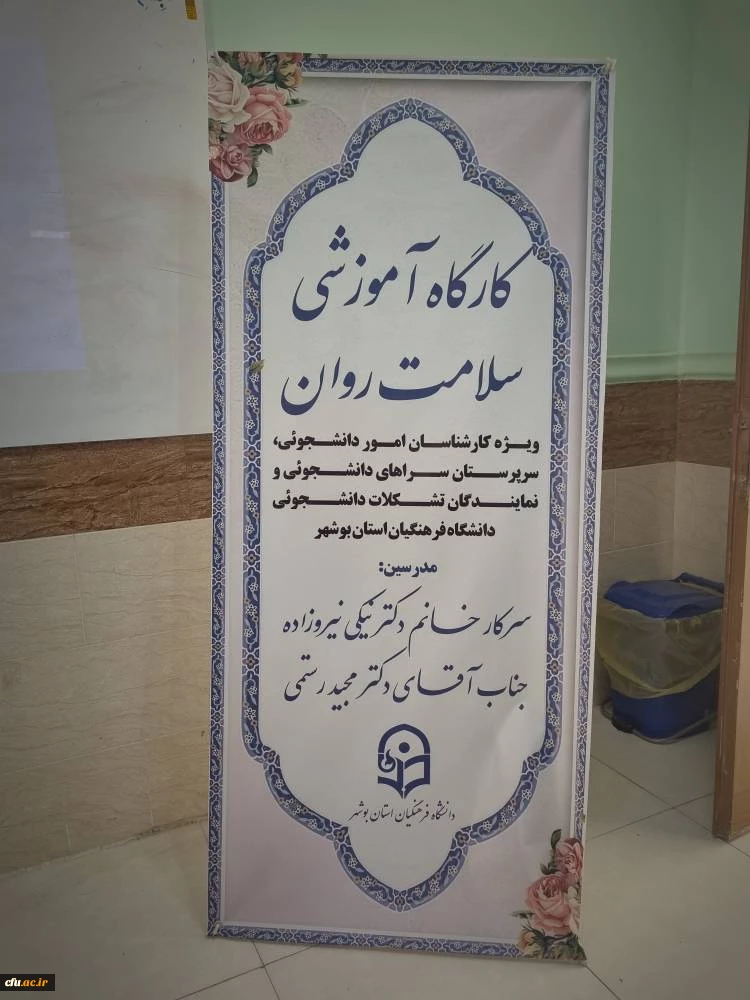 کارگاه آموزشی
سلامت روان
ویژه کارشناسان امور دانشجوئی،
سرپرستان سراهای دانشجوئی و
نمایندگان تشکلات دانشجوئی
دانشگاه فرهنگیان استان بوشهر
مدرسین:
سرکار خانم دکتر نیکی نیروزاده
جناب آقای دکتر مجید رستمی
دانشگاه فرهنگیان استان بوشهر
cfu.ac.ir